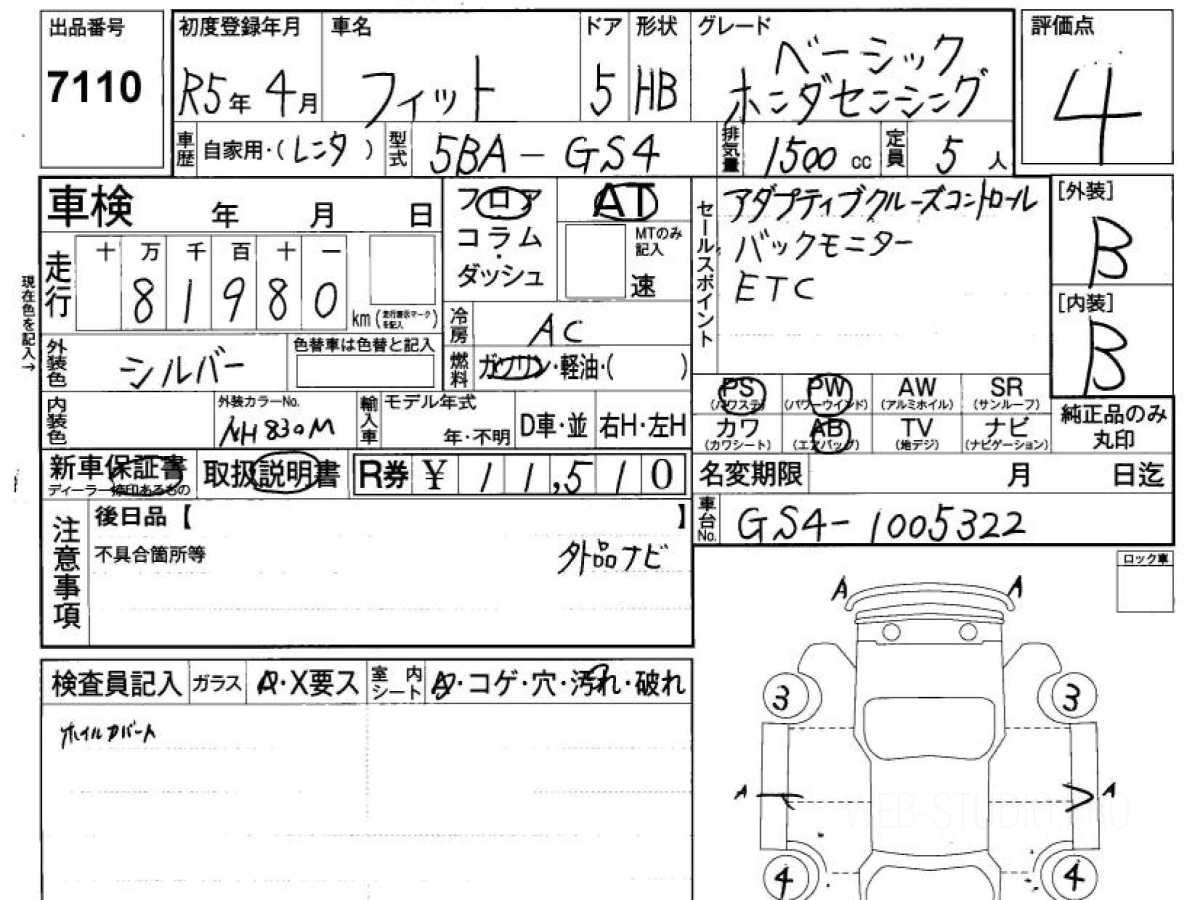 出品番号
7110
初度登録年月 車名 ドア 形状 グレード
R5年 4月 フィット 5 HB ベーシック
ホンダセンシング
評価点
4
車歴 自家用・(レンタ) 型式 5BA-GS4 排気量 1500 cc 定員 5 人
車検 年 月 日
フロア
コラム
・
ダッシュ
AT
MTのみ
記入
速
セールスポイント
アダプティブクルーズコントロール
バックモニター
ETC
[外装]
B
[内装]
B
現在色を記入→
走行 十 万 千 百 十 一
81980 km (走行表示マークを記入)
冷房 AC
燃料 ガソリン・軽油・( )
外装色 シルバー 色替車は色替と記入
内装色 外装カラーNo. NH830M
輸入車 モデル年式 年・不明 D車・並 右H・左H
PS (パワステ) PW (パワーウインド) AW (アルミホイル) SR (サンルーフ)
カワ (カワシート) AB (エアバッグ) TV (地デジ) ナビ (ナビゲーション)
純正品のみ
丸印
新車保証書 取扱説明書 R券 ¥ 11,510
ディーラー捺印あるもの
名変期限 月 日迄
車台No. GS4-1005322
注意事項
後日品【 】
不具合箇所等 外品ナビ
ロック車
検査員記入 ガラス A・X要ス 室内シート A・コゲ・穴・汚れ・破れ
ホイルカバーA
A A
3 3
A A
4 4
WEB-STUDIO.PRO